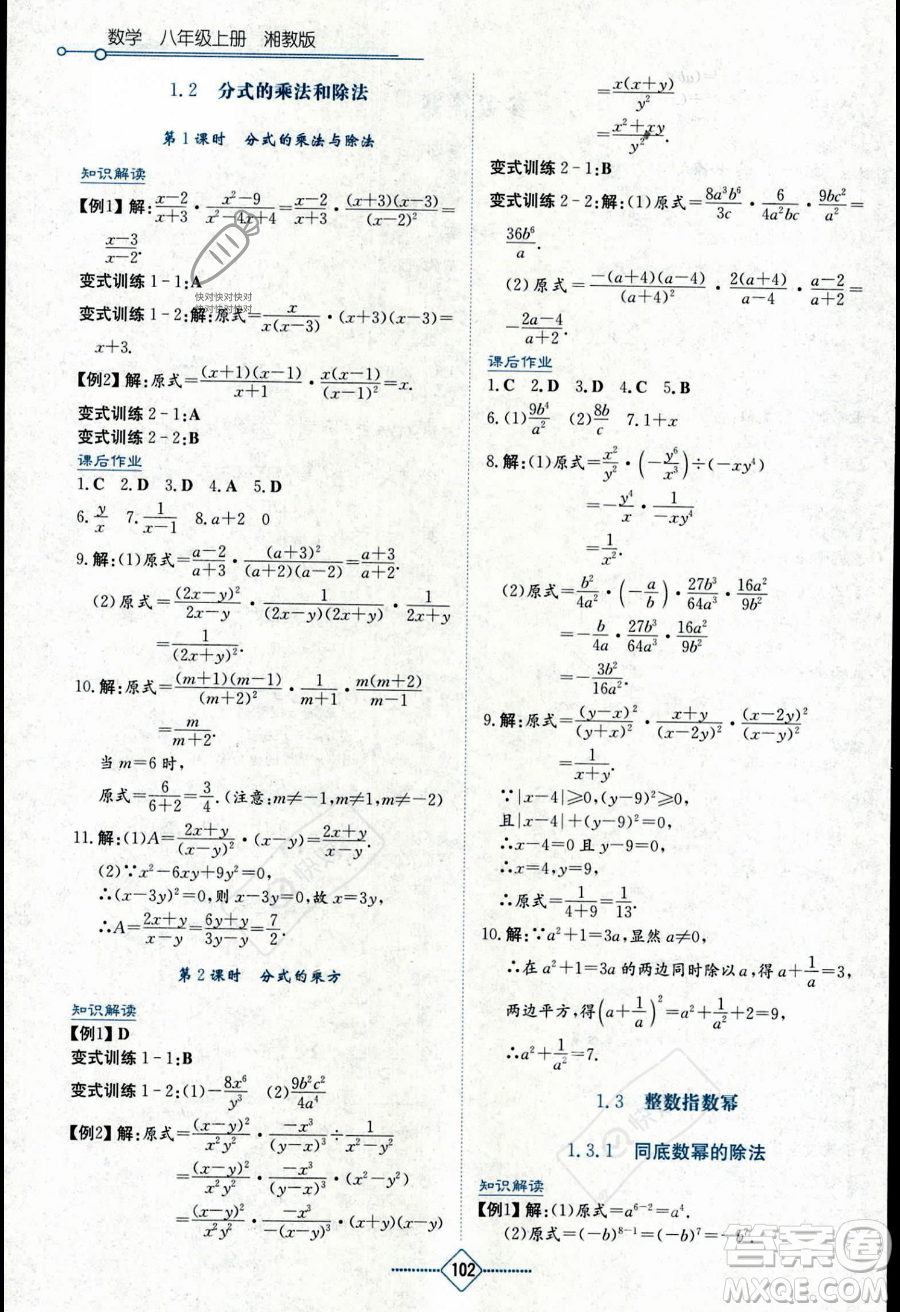 数学 八年级上册 湘教版
1.2 分式的乘法和除法
第1课时 分式的乘法与除法
知识解读
【例1】解:\frac{x-2}{x+3}·\frac{x²-9}{x²-4x+4}=\frac{x-2}{x+3}·\frac{(x+3)(x-3)}{(x-2)²}=
\frac{x-3}{x-2}.
变式训练1-1:A
快对快对快对
快对快对快对
变式训练1-2:解:原式=\frac{x}{x(x-3)}·(x+3)(x-3)=
x+3.
【例2】解:原式=\frac{(x+1)(x-1)}{x+1}·\frac{x(x-1)}{(x-1)²}=x.
变式训练2-1:A
变式训练2-2:B
课后作业
1.C 2.D 3.D 4.A 5.D
6.\frac{y}{x} 7.\frac{1}{x-1} 8.a+2 0
9.解:(1)原式=\frac{a-2}{a+3}·\frac{(a+3)²}{(a+3)(a-3)}=\frac{a-2}{a-3}.
(2)原式=\frac{(2x-y)²}{2x-y}·\frac{1}{(2x-y)(2x+y)}·\frac{1}{2x+y}
=\frac{1}{(2x+y)²}.
10.解:原式=\frac{(m+1)(m-1)}{(m+2)²}·\frac{1}{m+1}·\frac{m(m+2)}{m-1}
=\frac{m}{m+2}.
当m=6时,
原式=\frac{6}{6+2}=\frac{3}{4}.(注意:m≠-1,m≠-2)
11.解:(1)A=\frac{2x+y}{(x-y)²}·(x-y)=\frac{2x+y}{x-y}.
(2)∵x²-6xy+9y²=0,
∴(x-3y)²=0,则x-3y=0,故x=3y,
∴A=\frac{2x+y}{x-y}=\frac{6y+y}{3y-y}=\frac{7}{2}.
第2课时 分式的乘方
知识解读
【例1】D
变式训练1-1:B
变式训练1-2:(1)-\frac{8x⁶}{y³} (2)\frac{9b²c²}{4a⁴}
【例2】解:原式=\frac{(x+y)²(x-y)²}{x²y²}·\frac{-x³}{(x-y)³}÷\frac{x²-y²}{-xy}
=\frac{(x+y)²(x-y)²}{x²y²}·\frac{-x³}{(x-y)³}·\frac{-xy}{x²-y²}
=\frac{x(x+y)}{y²}
=\frac{x²+xy}{y²}.
变式训练2-1:B
变式训练2-2:解:(1)原式=\frac{8a³b⁶}{3c}·\frac{6}{4a²bc}·\frac{9bc²}{a²}=
\frac{36b⁶}{a}.
(2)原式=\frac{-(a+4)(a-4)}{(a+4)²}·\frac{2(a+4)}{a-4}·\frac{a-2}{a+2}=
-\frac{2a-4}{a+2}.
课后作业
1.C 2.D 3.D 4.C 5.B
6.(1)\frac{9b⁴}{a²} (2)\frac{8b}{c} 7.1+x
8.解:(1)原式=\frac{x²}{y}·(-\frac{y⁶}{x³})÷(-xy⁴)
=-\frac{y⁴}{x}·\frac{1}{-xy⁴}
=\frac{1}{x²}.
(2)原式=\frac{b²}{4a²}·(-\frac{a}{b})·\frac{27b³}{64a³}·\frac{16a²}{9b²}
=-\frac{b}{4a}·\frac{27b³}{64a³}·\frac{16a²}{9b²}
=-\frac{3b²}{16a²}.
9.解:原式=\frac{(y-x)²}{(y+x)²}·\frac{x+y}{(x-2y)²}·\frac{(x-2y)²}{(x-y)²}
=\frac{1}{x+y}.
∵|x-4|≥0,(y-9)²≥0,
且|x-4|+(y-9)²=0,
∴x-4=0且y-9=0,
∴x=4,y=9,
∴原式=\frac{1}{4+9}=\frac{1}{13}.
10.解:∵a²+1=3a,显然a≠0,
∴在a²+1=3a的两边同时除以a,得a+\frac{1}{a}=3,
两边平方,得(a+\frac{1}{a})²=a²+\frac{1}{a²}+2=9,
∴a²+\frac{1}{a²}=7.
1.3 整数指数幂
1.3.1 同底数幂的除法
知识解读
【例1】解:(1)原式=a⁶⁻²=a⁴.
(2)原式=(-b)⁸⁻¹=(-b)⁷=-b⁷.
102
答案圈
MXQE.COM